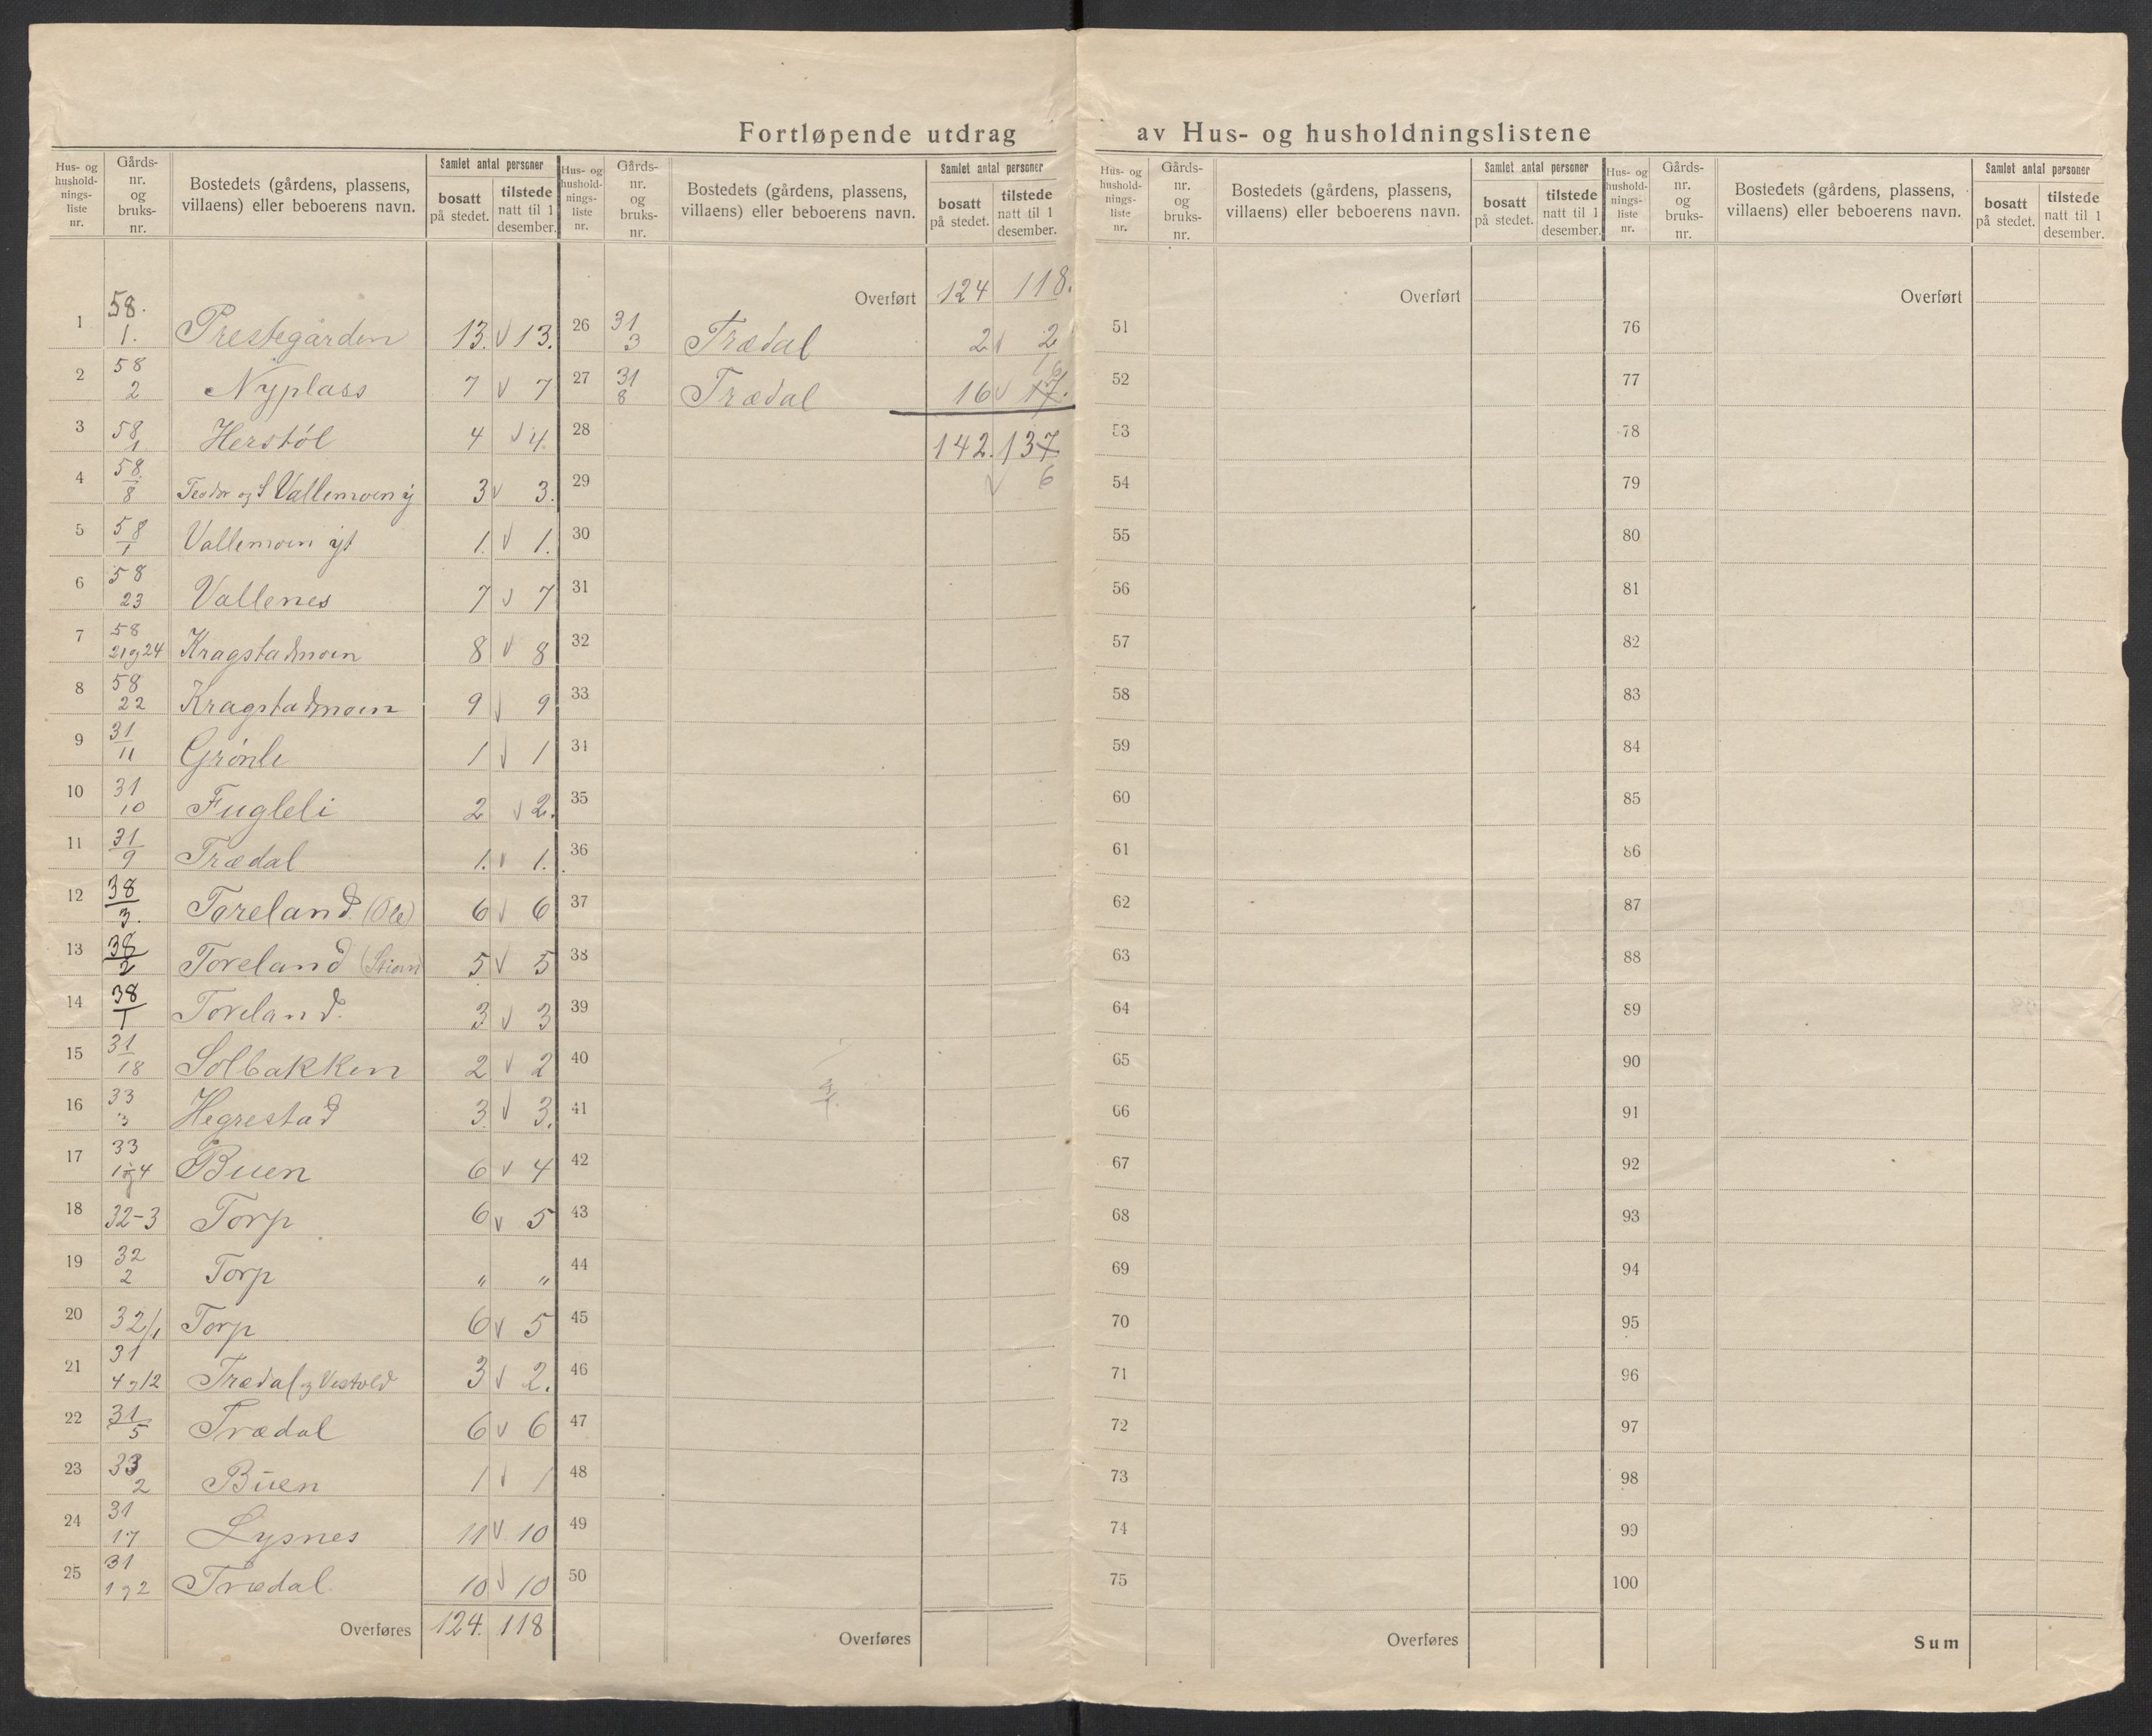 Fortløpende utdrag av Hus- og husholdningslistene
Hus- og hushold-nings-liste nr. Gårds-nr. og bruks-nr. Bostedets (gårdens, plassens, villaens) eller beboerens navn. Samlet antal personer bosatt på stedet. tilstede natt til 1 desember.
1 58. 1. Prestegården 13. √ 13.
2 58 2 Nyplass 7 √ 7
3 58 1 Herstöl 4 √ 4.
4 58. 8 Teodor og S Vallemoen y 3 √ 3.
5 58 1 Vallemoen yt 1. √ 1.
6 58 23 Vallenes 7 √ 7
7 58 21 og 24 Kragstadmoen 8 √ 8
8 58 22 Kragstadmoen 9 √ 9
9 31 11 Grönli 1 √ 1
10 31 10 Fugleli 2 √ 2.
11 31 9 Trædal 1. √ 1.
12 38 3. Toreland (Ole) 6 √ 6
13 38 2 Toreland 5 √ 5
14 38 1 Toreland. 3 √ 3
15 31 18 Solbakken 2 √ 2
16 33 3 Hegrestad 3. √ 3.
17 33 1 og 4 Buen 6 √ 4
18 32-3 Torp 6 √ 5
19 32 2 Torp " "
20 32/1 Torp 6 √ 5
21 31 4 og 12 Trædal og Vestvold 3 √ 2.
22 31 5 Trædal 6 √ 6
23 33 2 Buen 1 √ 1
24 31 17 Lysnes 11 √ 10
25 31 1 og 2 Trædal 10 √ 10
Overføres 124. 118
Hus- og hushold-nings-liste nr. Gårds-nr. og bruks-nr. Bostedets (gårdens, plassens, villaens) eller beboerens navn. Samlet antal personer bosatt på stedet. tilstede natt til 1 desember.
Overført 124 118.
26 31 3 Trædal 2 √ 2
27 31 8 Trædal 16 √ 17. 16
28 142. 137
29 √ 6
30
31
32
33
34
35
36
37
38
39
40
41
42
43
44
45
46
47
48
49
50
Overføres
Hus- og hushold-nings-liste nr. Gårds-nr. og bruks-nr. Bostedets (gårdens, plassens, villaens) eller beboerens navn. Samlet antal personer bosatt på stedet. tilstede natt til 1 desember.
Overført
51
52
53
54
55
56
57
58
59
60
61
62
63
64
65
66
67
68
69
70
71
72
73
74
75
Overføres
Hus- og hushold-nings-liste nr. Gårds-nr. og bruks-nr. Bostedets (gårdens, plassens, villaens) eller beboerens navn. Samlet antal personer bosatt på stedet. tilstede natt til 1 desember.
Overført
76
77
78
79
80
81
82
83
84
85
86
87
88
89
90
91
92
93
94
95
96
97
98
99
100
Sum